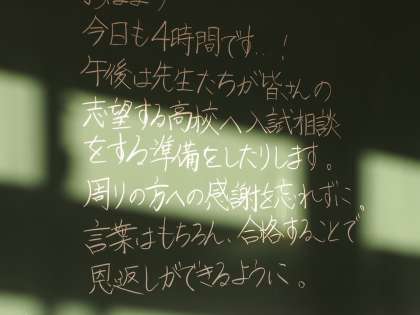 おはよう
今日も4時間です…!
午後は先生たちが皆さんの
志望する高校へ入試相談
をする準備をしたりします。
周りの方への感謝を忘れずに。
言葉はもちろん、合格することで
恩返しができるように。